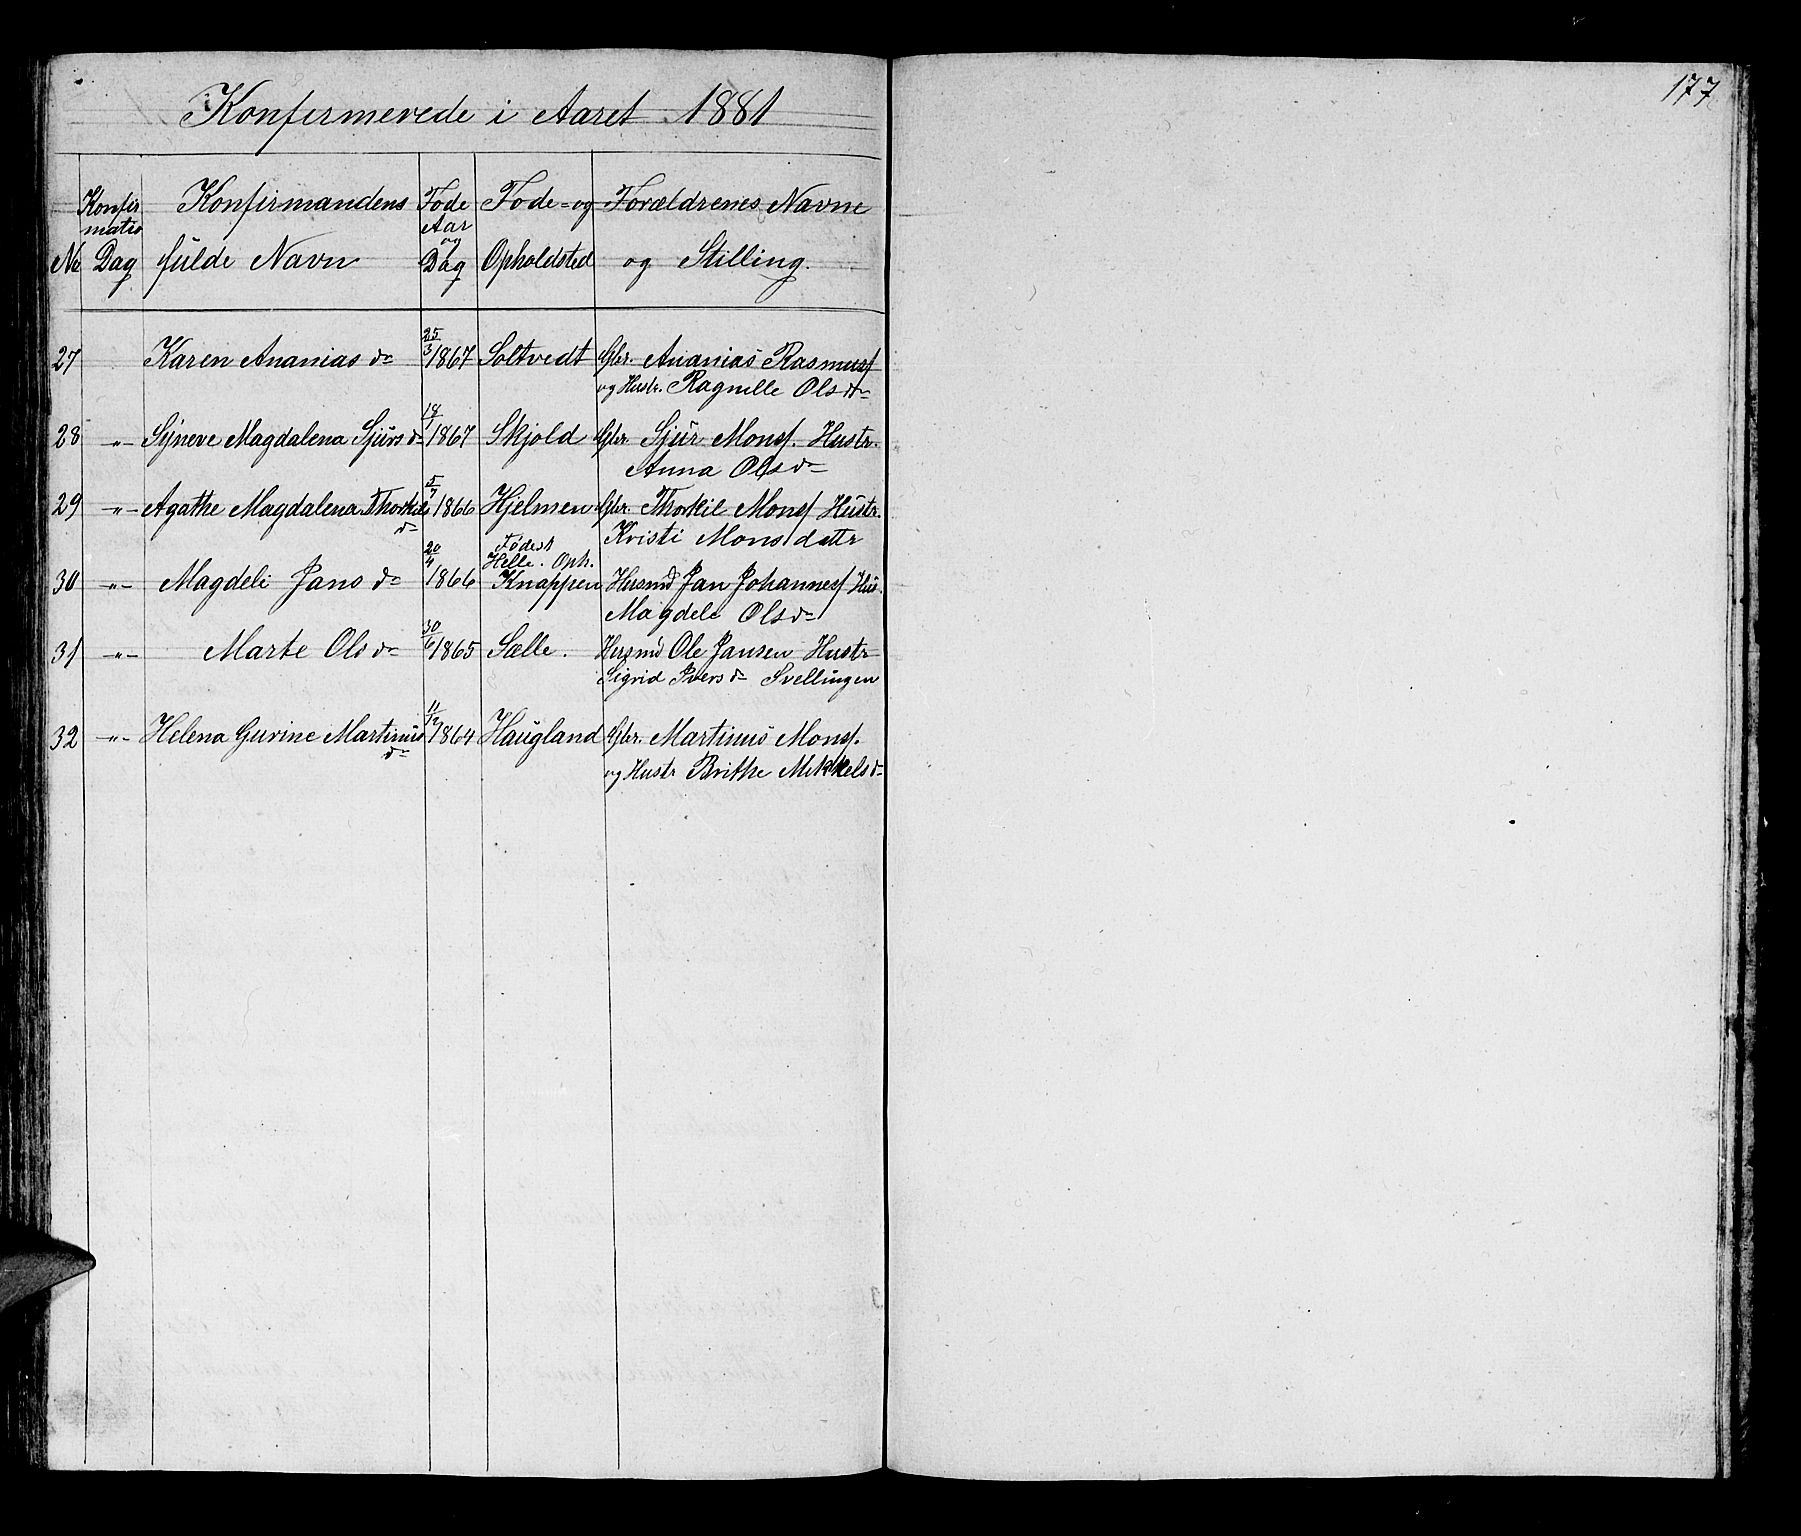 177
Konfirmerede i Aaret 1881
No
Konfirmatio Dag
Konfirmandens fulde Navn
Føde Aar og Dag
Føde- og Opholdsted
Forældrenes Navne og Stilling.
27 Karen Ananias dr 25/3 1867 Soltvedt Gbr. Ananias Rasmuss
og Hustr. Ragnille Olsdr
28 -"- Syneve Magdalena Sjurs dr 18/1 1867 Skjold Gbr. Sjur Mons. Hustr.
Anna Olsdr
29 -"- Agathe Magdalena Thorkils 5/7 1866 Hjelmen Gbr. Thorkil Mons Hustr.
dr Kristi Monsdattr
30 -"- Magdeli Jans dr 20/4 1866 Fødest Helle. Oph. Knappen Husmd Jan Johanness Hus.
Magdele Olsdr
31 -"- Marte Ols dr 30/6 1865 Sælle. Husmd Ole Jansen Hustr
Sigrid Ivers dr Svellingen
32 -"- Helena Gurine Martinus 11/12 1864 Haugland Gbr. Martinus Mons.
dr og Hustr Brithe Mikkels dr